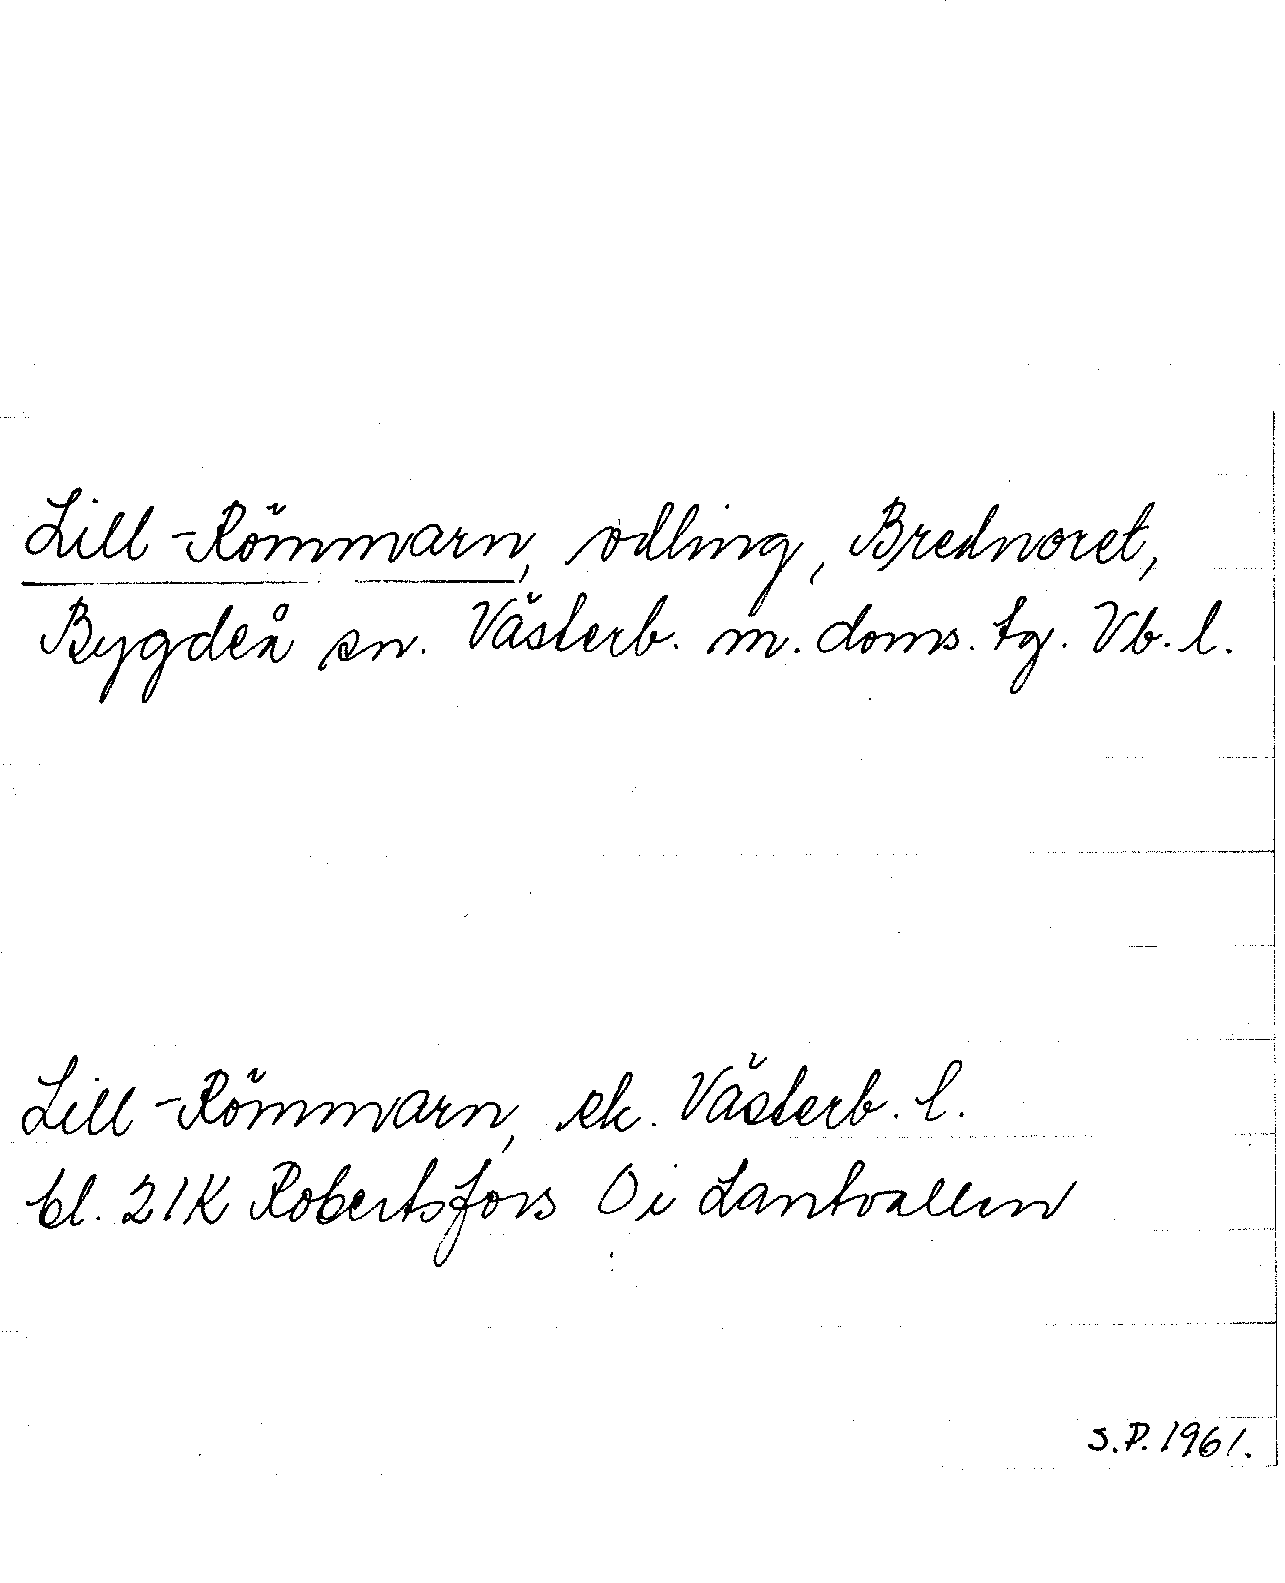 Lill-Römmarn, odling, Brednoret,
Bygdeå sn. Västerb. m. doms. tg. Vb. l.
Lill-Römmarn, ek. Västerb. l.
bl. 21K Robertsfors 0 i Lantvallen
S.P. 1961.